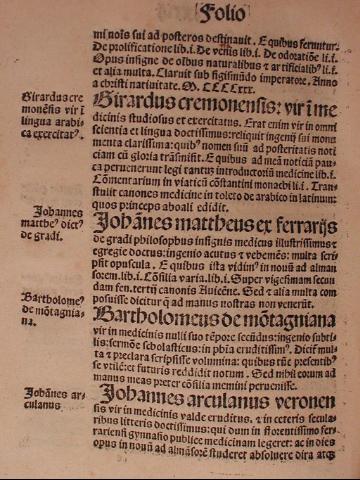 Folio
mi noīs sui ad posteros destinauit. E quibus feruntur.
De prolificatione lib. i. De venis lib. i. De odoratiōe li. i.
Opus insigne de oībus naturalibus ⁊ artificialibꝰ li. i.
et alia multa. Claruit sub sigismūdo imperatore. Anno
a christi natiuitate. M. CCCCxxx.
Girardus cre
monēsis vir ī
lingua arabi
ca exercitatꝰ.
Girardus cremonensis: vir ī me
dicinis studiosus et exercitatus. Erat enim vir in omni
scientia et lingua doctissimus: reliquit ingenij sui monu
menta clarissima: quibꝰ nomen suū ad posteritatis noti
ciam cū gloria trāsmisit. E quibus ad meā noticiā pau
ca peruenerunt legi tantuꝫ introductoriū medicine lib. i.
Cōmentarium in viaticū cōstantini monachi li. i. Tran
stulit canones medicine in toleto de arabico in latinum:
quos princeps aboali edidit.
Johannes
mattheꝰ dictꝰ
de gradi.
Johānes mattheus ex ferrarijs
de gradi philosophus insignis medicus illustrissimus ⁊
egregie doctus: ingenio acutus ⁊ vehemēs: multa scri
psit opuscula. E quibus ista vidimꝰ in nouū ad alman
sorem. lib. i. Cōsilia varia. lib. i. Super vigesimam secun
dam fen. tertij canonis Auicēne. Sed ⁊ alia multa com
posuisse dicitur que ad manus nostras non venerūt.
Bartholomeꝰ
de mōtagnia
na.
Bartholomeus de mōtagniana
vir in medicinis nulli suo tēpore secūdus: ingenio subti
lis: sermōe scholasticus: in phīa eruditissimꝰ. Dicit mul
ta ⁊ preclara scripsisse volumina: quibus tūc presentibꝰ
se vtilē: et futuris reddidit notum. Sed nihil eorum ad
manus meas preter cōsilia memini peruenisse.
Johānes ar-
culanus
Johannes arculanus veronen
sis vir in medicinis valde eruditus. ⁊ in ceteris secula-
ribus litteris doctissimus: qui dum in florentissimo fer-
rariensi gymnasio publice medicinam legeret: ac in dies
opus in nouū ad almāsorē studeret absoluere dira atqꝫ